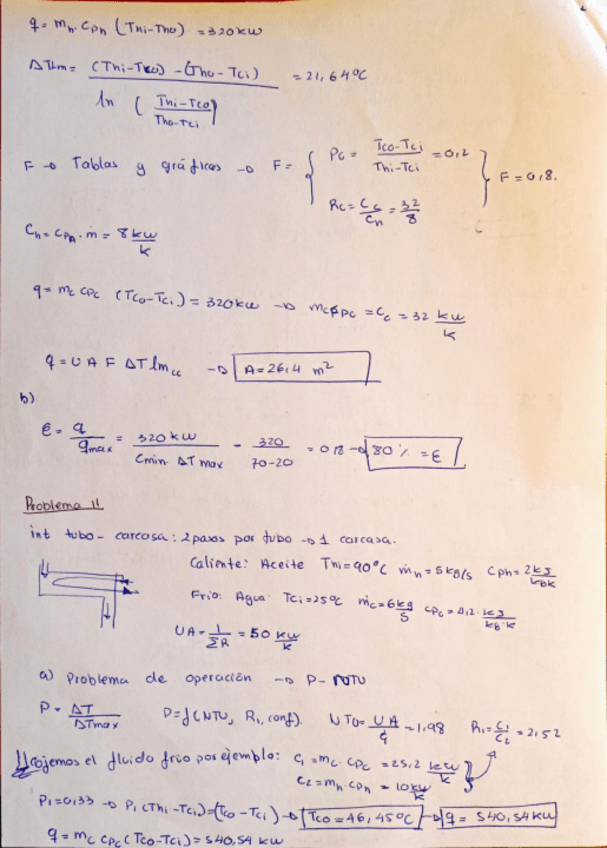 q = ṁh Cph (Thi-Tho) = 320 kW
ΔTlm = (Thi-Tco) - (Tho-Tci) / ln (Thi-Tco / Tho-Tci) = 21,64ºC
F → Tablas y gráficas → F = { Pc = Tco-Tci / Thi-Tci = 0,2
Rc = Cc / Ch = 32 / 8 } F = 0,8.
Ch = Cph · ṁ = 8 kW / K
q = mc Cpc (Tco-Tci) = 320 kW → mc Cpc = Cc = 32 kW / K
q = U A F ΔTlm cc → A = 26,4 m²
b)
ε = q / qmax = 320 kW / Cmin ΔT max = 320 / 70-20 = 0,8 → 80 % = ε
Problema 11
int tubo - carcasa: 2 pasos por tubo → 1 carcasa.
Caliente: Aceite Thi = 90ºC ṁh = 5 kg/s Cph = 2 kJ / kg K
Frío: Agua Tci = 25ºC ṁc = 6 kg / s Cpc = 4,2 kJ / kg·K
UA = 1 / ΣR = 50 kW / K
a) Problema de operación → P-NTU
P = ΔT / ΔTmax P = f(NTU, R1, conf). NTU = UA / C1 = 1,98 R1 = C1 / C2 = 2,52
Cojemos el fluido frío por ejemplo: C1 = mc · Cpc = 25,2 kW / K
C2 = mh · Cph = 10 kW / K
P1 = 0,33 → P1 (Thi - Tci) = (Tco - Tci) → Tco = 46,45ºC → q = 540,54 kW
q = mc Cpc (Tco-Tci) = 540,54 kW